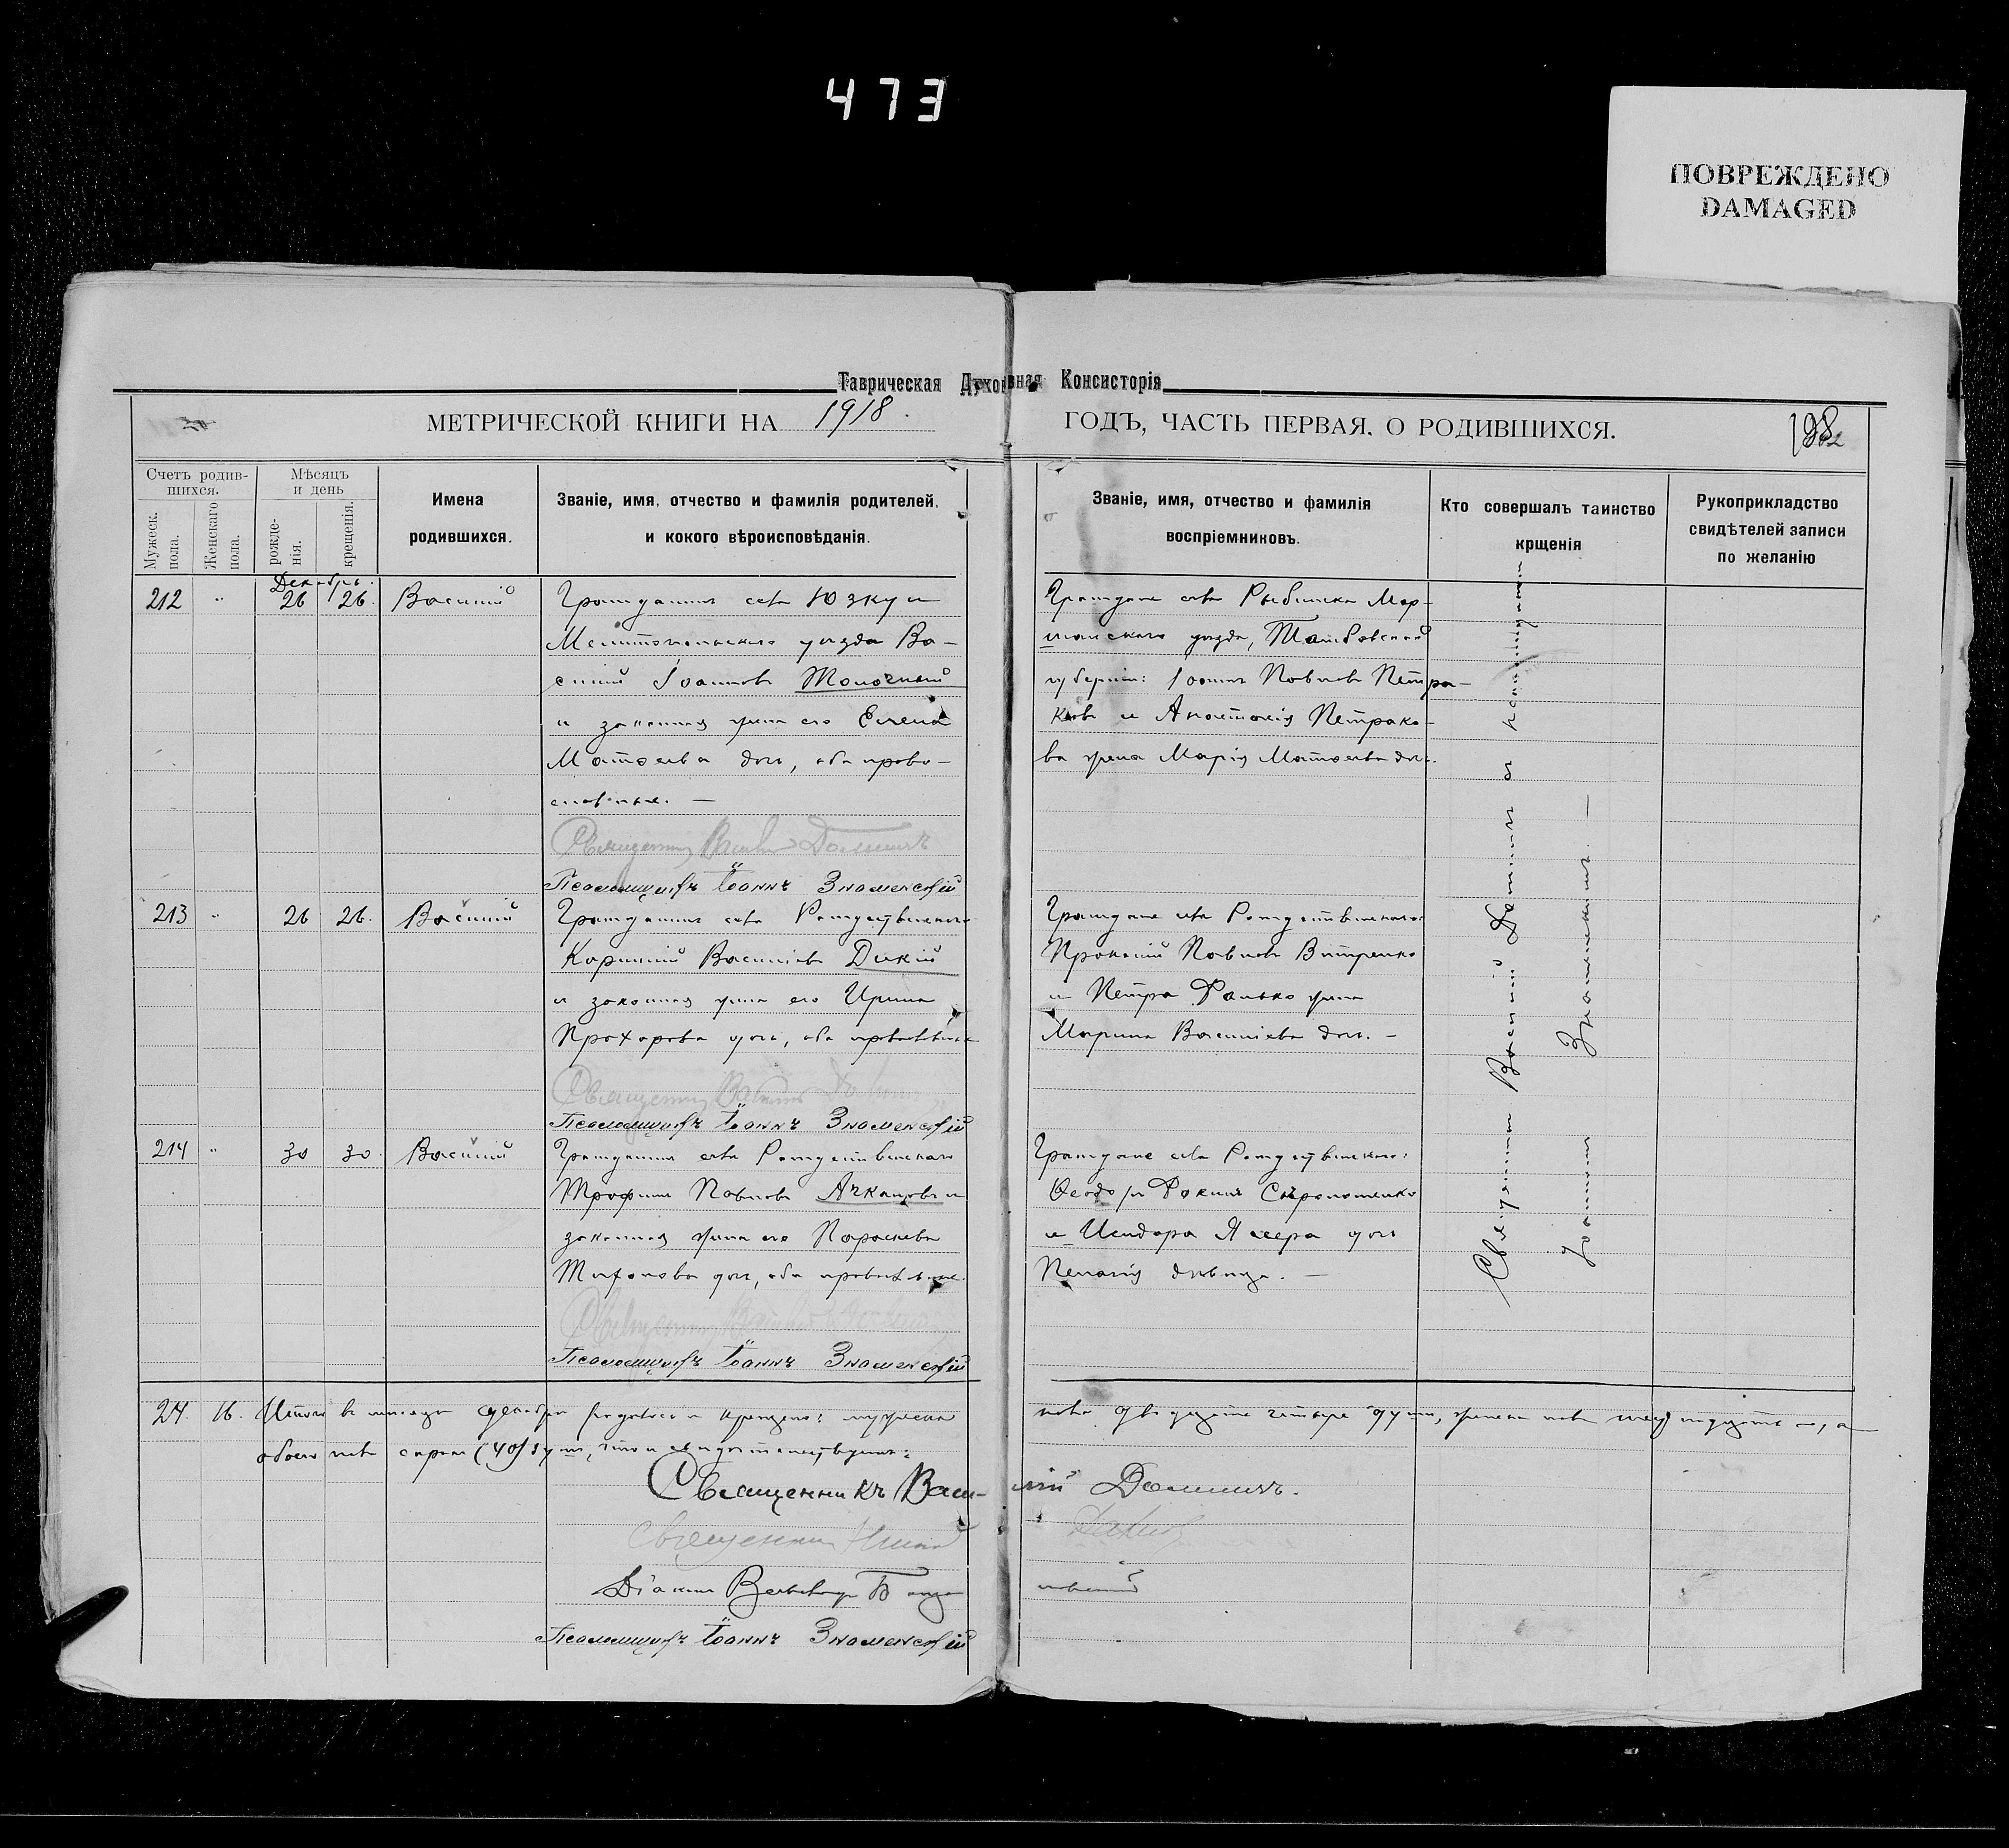 473
ПОВРЕЖДЕНО
DAMAGED
Таврическая Духовная Консисторія
МЕТРИЧЕСКОЙ КНИГИ НА 1918 ГОДЪ, ЧАСТЬ ПЕРВАЯ, О РОДИВШИХСЯ.
Счетъ родив-
шихся.
Мужеск.
пола.
Женскаго
пола.
Мѣсяцъ
и день
рожде-
нія.
крещенія.
Имена
родившихся.
Званіе, имя, отчество и фамилія родителей,
и кокого вѣроисповѣданія.
Званіе, имя, отчество и фамилія
воспріемниковъ.
Кто совершалъ таинство
крщенія
Рукоприкладство
свидѣтелей записи
по желанію
Декабрь.
212 " 26 26. Василій
Гражданинъ села Юзкуи
Мелитопольскаго уѣзда Ва-
силій Іоанновъ Молочный
и законная жена его Елена
Матѳеева дочь, оба право-
славные. —
Священникъ Василій Долининъ
Псаломщикъ Іоаннъ Знаменскій
Граждане села Рыбинска Мор-
шанскаго уѣзда, Тамбовской
губерніи: Іоаннъ Павловъ Петра-
ковъ и Анатолія Петрако-
ва жена Марія Матѳеева дочь.
213 " 26 26. Василій
Гражданинъ села Рождественскаго
Карпій Василіевъ Дикій
и законная жена его Ирина
Прохорова дочь, оба православные
Священникъ Василій
Псаломщикъ Іоаннъ Знаменскій
Граждане села Рождественскаго:
Прокопій Павловъ Витренко
и Петра Фанько жена
Марина Василіева дочь. —
214 " 30 30. Василій
Гражданинъ села Рождественскаго
Трофимъ Павловъ Ачкановъ и
законная жена его Параскева
Тихонова дочь, оба православные.
Священникъ
Псаломщикъ Іоаннъ Знаменскій
Граждане села Рождественскаго:
Ѳеодоръ Фокинъ Сыропотенко
и Исидора Ясера дочь
Пелагія дѣвица. —
Священникъ Василій Долининъ съ псаломщикомъ
Іоанномъ Знаменскимъ —
24. 16. Итого въ мѣсяцѣ декабрѣ родилось и крещено: мужеска пола двадцать четыре души, женска пола шестнадцать, а
обоего пола сорокъ (40) душъ, что и свидетельствуемъ:
Священникъ Василій Долининъ.
Священникъ
Діаконъ
Псаломщикъ Іоаннъ Знаменскій